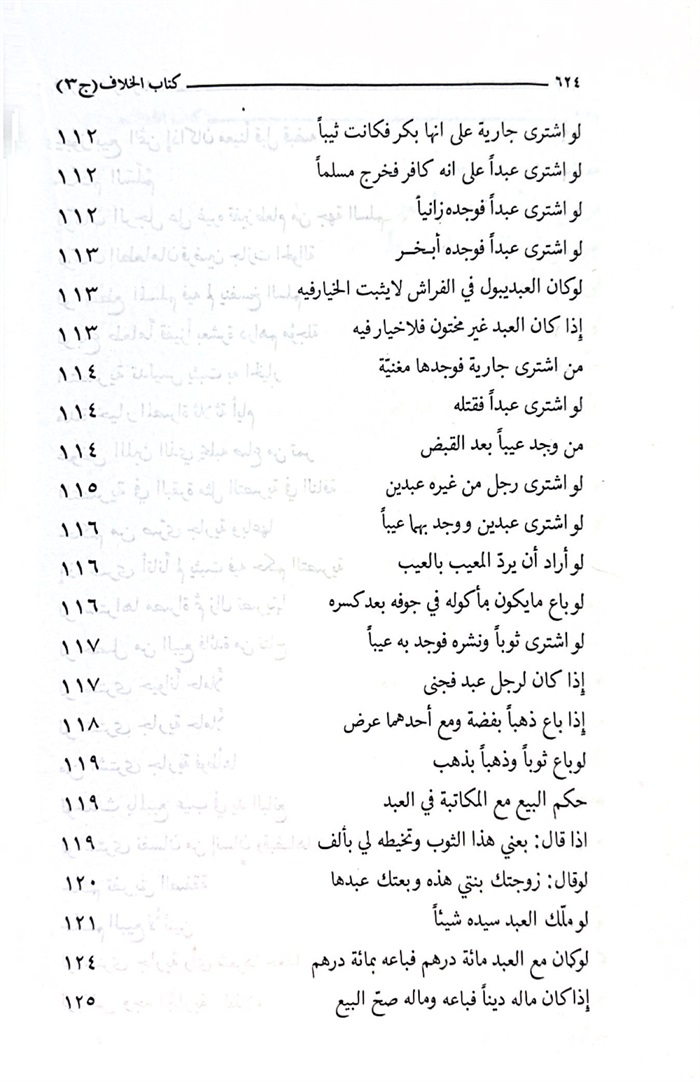 ٦٢٤ كتاب الخلاف (ج٣)
لو اشترى جارية على انها بكر فكانت ثيباً ١١٢
لو اشترى عبداً على انه كافر فخرج مسلماً ١١٢
لو اشترى عبداً فوجده زانياً ١١٢
لو اشترى عبداً فوجده أبخر ١١٣
لوكان العبديبول في الفراش لايثبت الخيارفيه ١١٣
إذا كان العبد غير مختون فلاخيار فيه ١١٣
من اشترى جارية فوجدها مغنيّة ١١٤
لو اشترى عبداً فقتله ١١٤
من وجد عيباً بعد القبض ١١٤
لو اشترى رجل من غيره عبدين ١١٥
لو اشترى عبدين ووجد بهما عيباً ١١٦
لو أراد أن يردّ المعيب بالعيب ١١٦
لوباع مايكون مأكوله في جوفه بعدكسره ١١٦
لو اشترى ثوباً ونشره فوجد به عيباً ١١٧
إذا كان لرجل عبد فجنى ١١٧
إذا باع ذهباً بفضة ومع أحدهما عرض ١١٨
لوباع ثوباً وذهباً بذهب ١١٩
حكم البيع مع المكاتبة في العبد ١١٩
اذا قال: بعني هذا الثوب وتخيطه لي بألف ١١٩
لوقال: زوجتك بنتي هذه وبعتك عبدها ١٢٠
لو ملّك العبد سيده شيئاً ١٢١
لوكان مع العبد مائة درهم فباعه بمائة درهم ١٢٤
إذاكان ماله ديناً فباعه وماله صحّ البيع ١٢٥